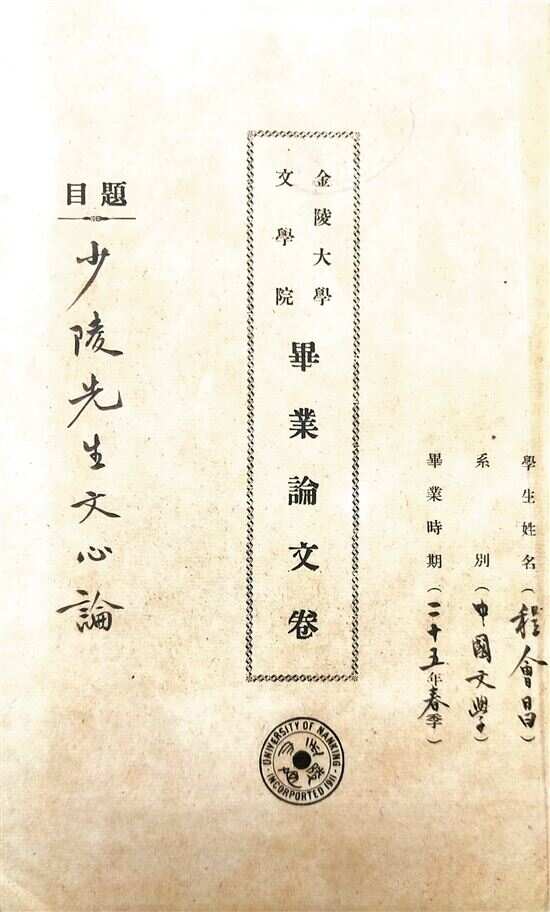 學生姓名（程會昌）
系別（中國文學）
畢業時期（二十五年春季）
金陵大學
文學院
畢業論文卷
題目
少陵先生文心論
UNIVERSITY OF NANKING
INCORPORATED 1911